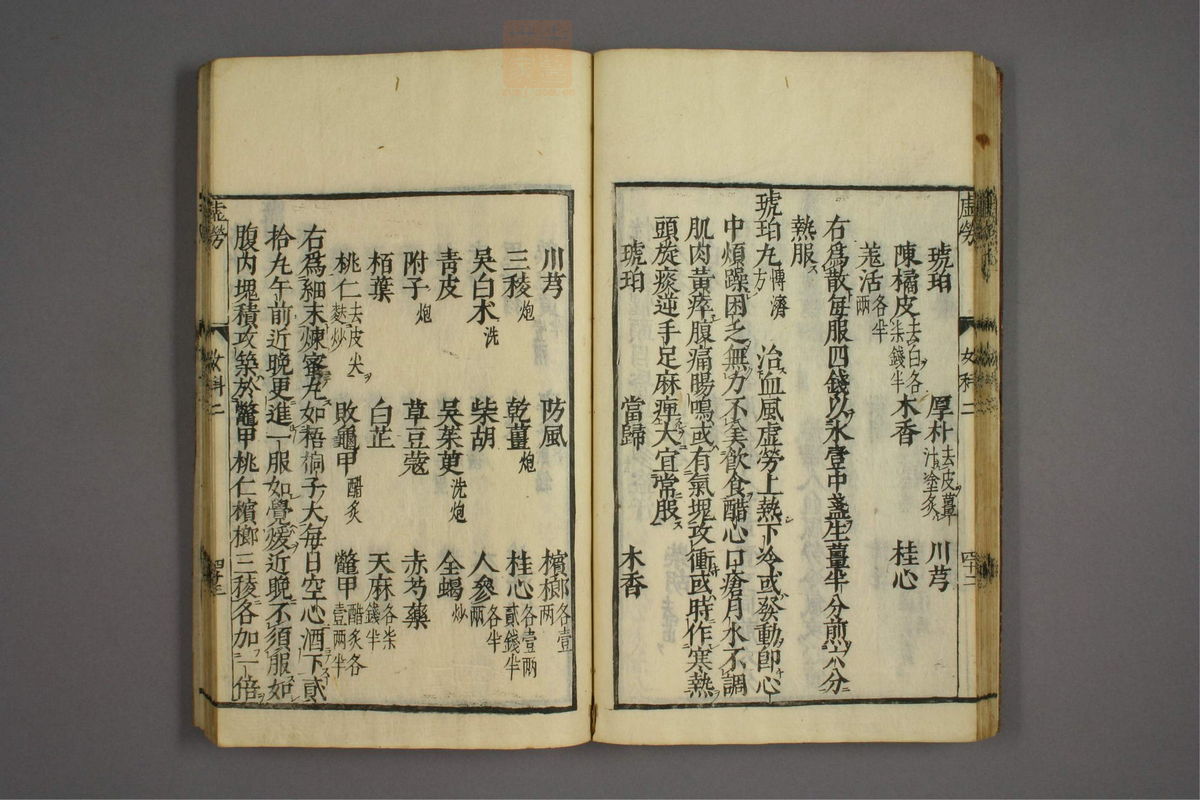 虛勞 女科二 四十二
琥珀 厚朴去皮薑汁塗炙 川芎
陳橘皮去白各柒錢半 木香 桂心
羗活各半兩
右爲散每服四錢以水壹中盞生薑半分煎六分
熱服
琥珀丸博濟方 治血風虛勞上熱下冷或發動卽心
中煩躁困乏無力不美飮食醋心口瘡月水不調
肌肉黃瘁腹痛腸鳴或有氣塊攻衝或時作寒熱
頭旋痰逆手足麻痺大宜常服
琥珀 當歸 木香
川芎 防風 檳榔各壹兩
三稜炮 乾薑炮 桂心各壹兩貳錢半
吳白朮洗 柴胡 人參各半兩
靑皮 吳茱萸洗炮 全蝎炒
附子炮 草豆蔻 赤芍藥
栢葉 白芷 天麻各柒錢半
桃仁去皮尖麩炒 敗龜甲醋炙 鼈甲醋炙各壹兩半
右爲細末煉蜜丸如梧桐子大每日空心酒下貳
拾丸午前近晚更進一服如覺煖近晚不須服如
腹內塊積攻築於鼈甲桃仁檳榔三稜各加一倍
虛勞 女科二